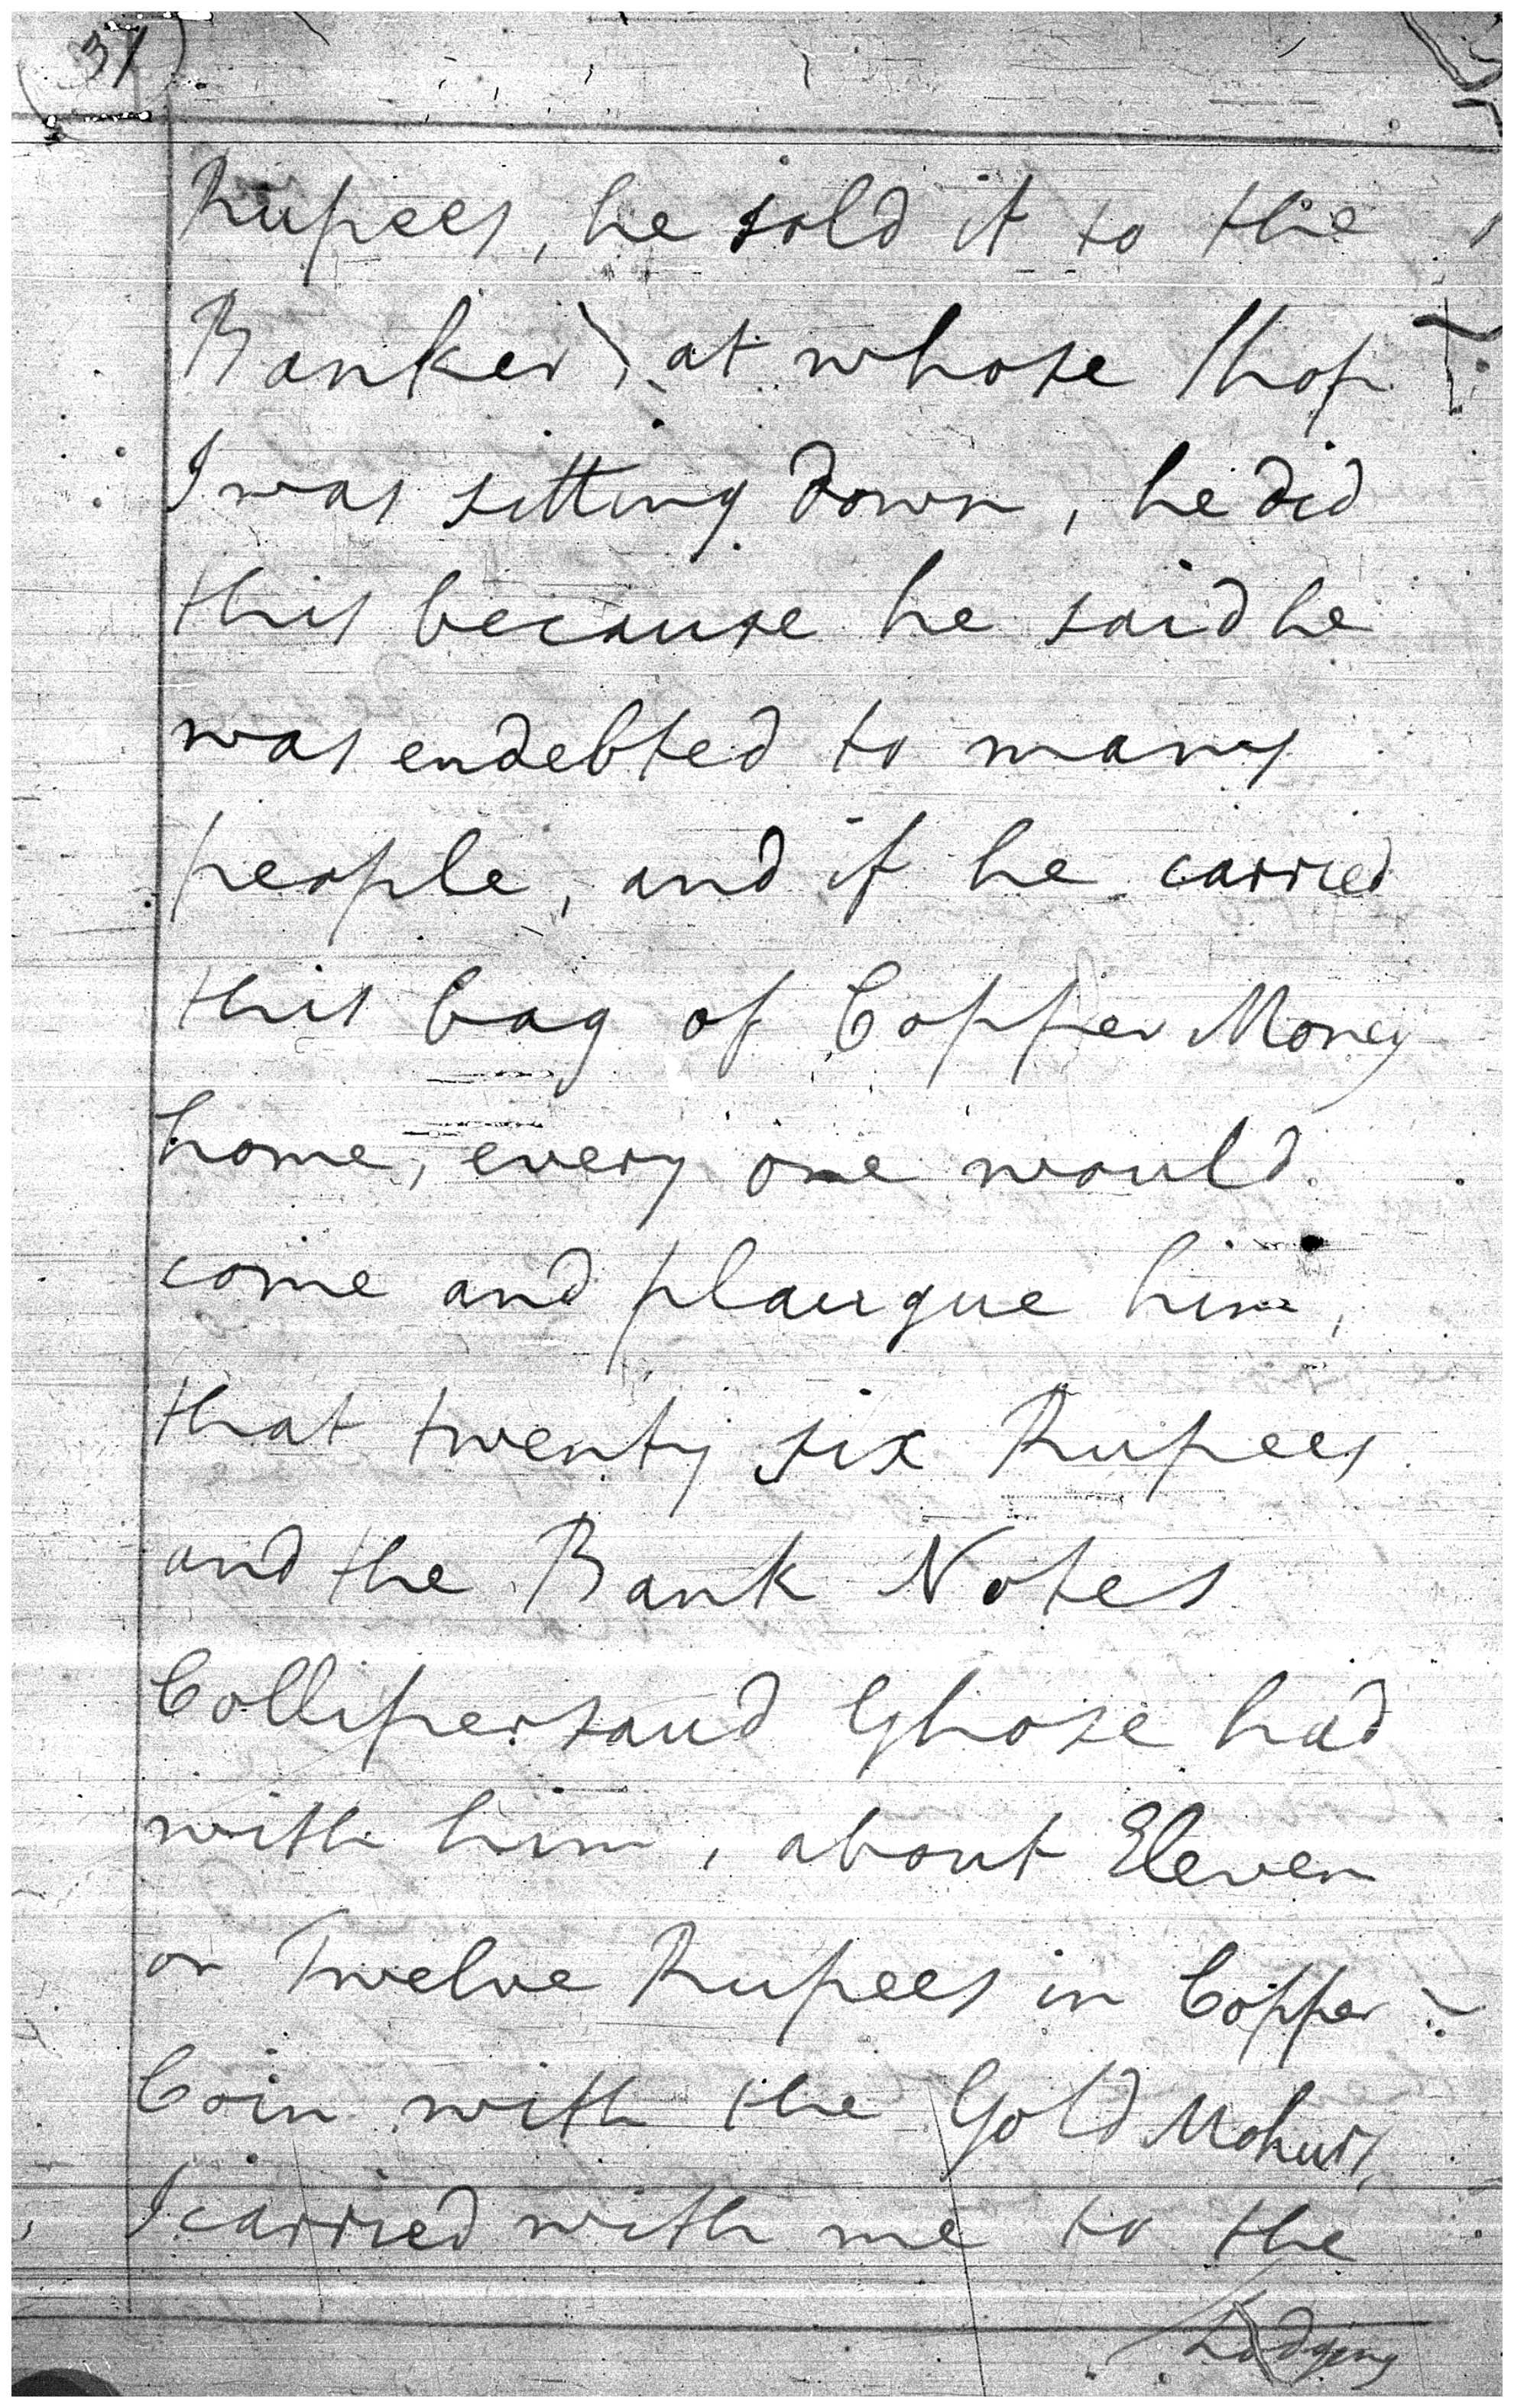 31
Rupees, he sold it to the
Banker, at whose Shop
I was sitting down, he did
this because he said he
was endebted to many
people, and if he carried
this bag of Copper Money
home, every one would
come and plaugue him,
that twenty six Rupees
and the Bank Notes
Collipersaud Ghose had
with him, about Eleven
or Twelve Rupees in Copper
Coin with the Gold Mohurs,
I carried with me to the
Lodging